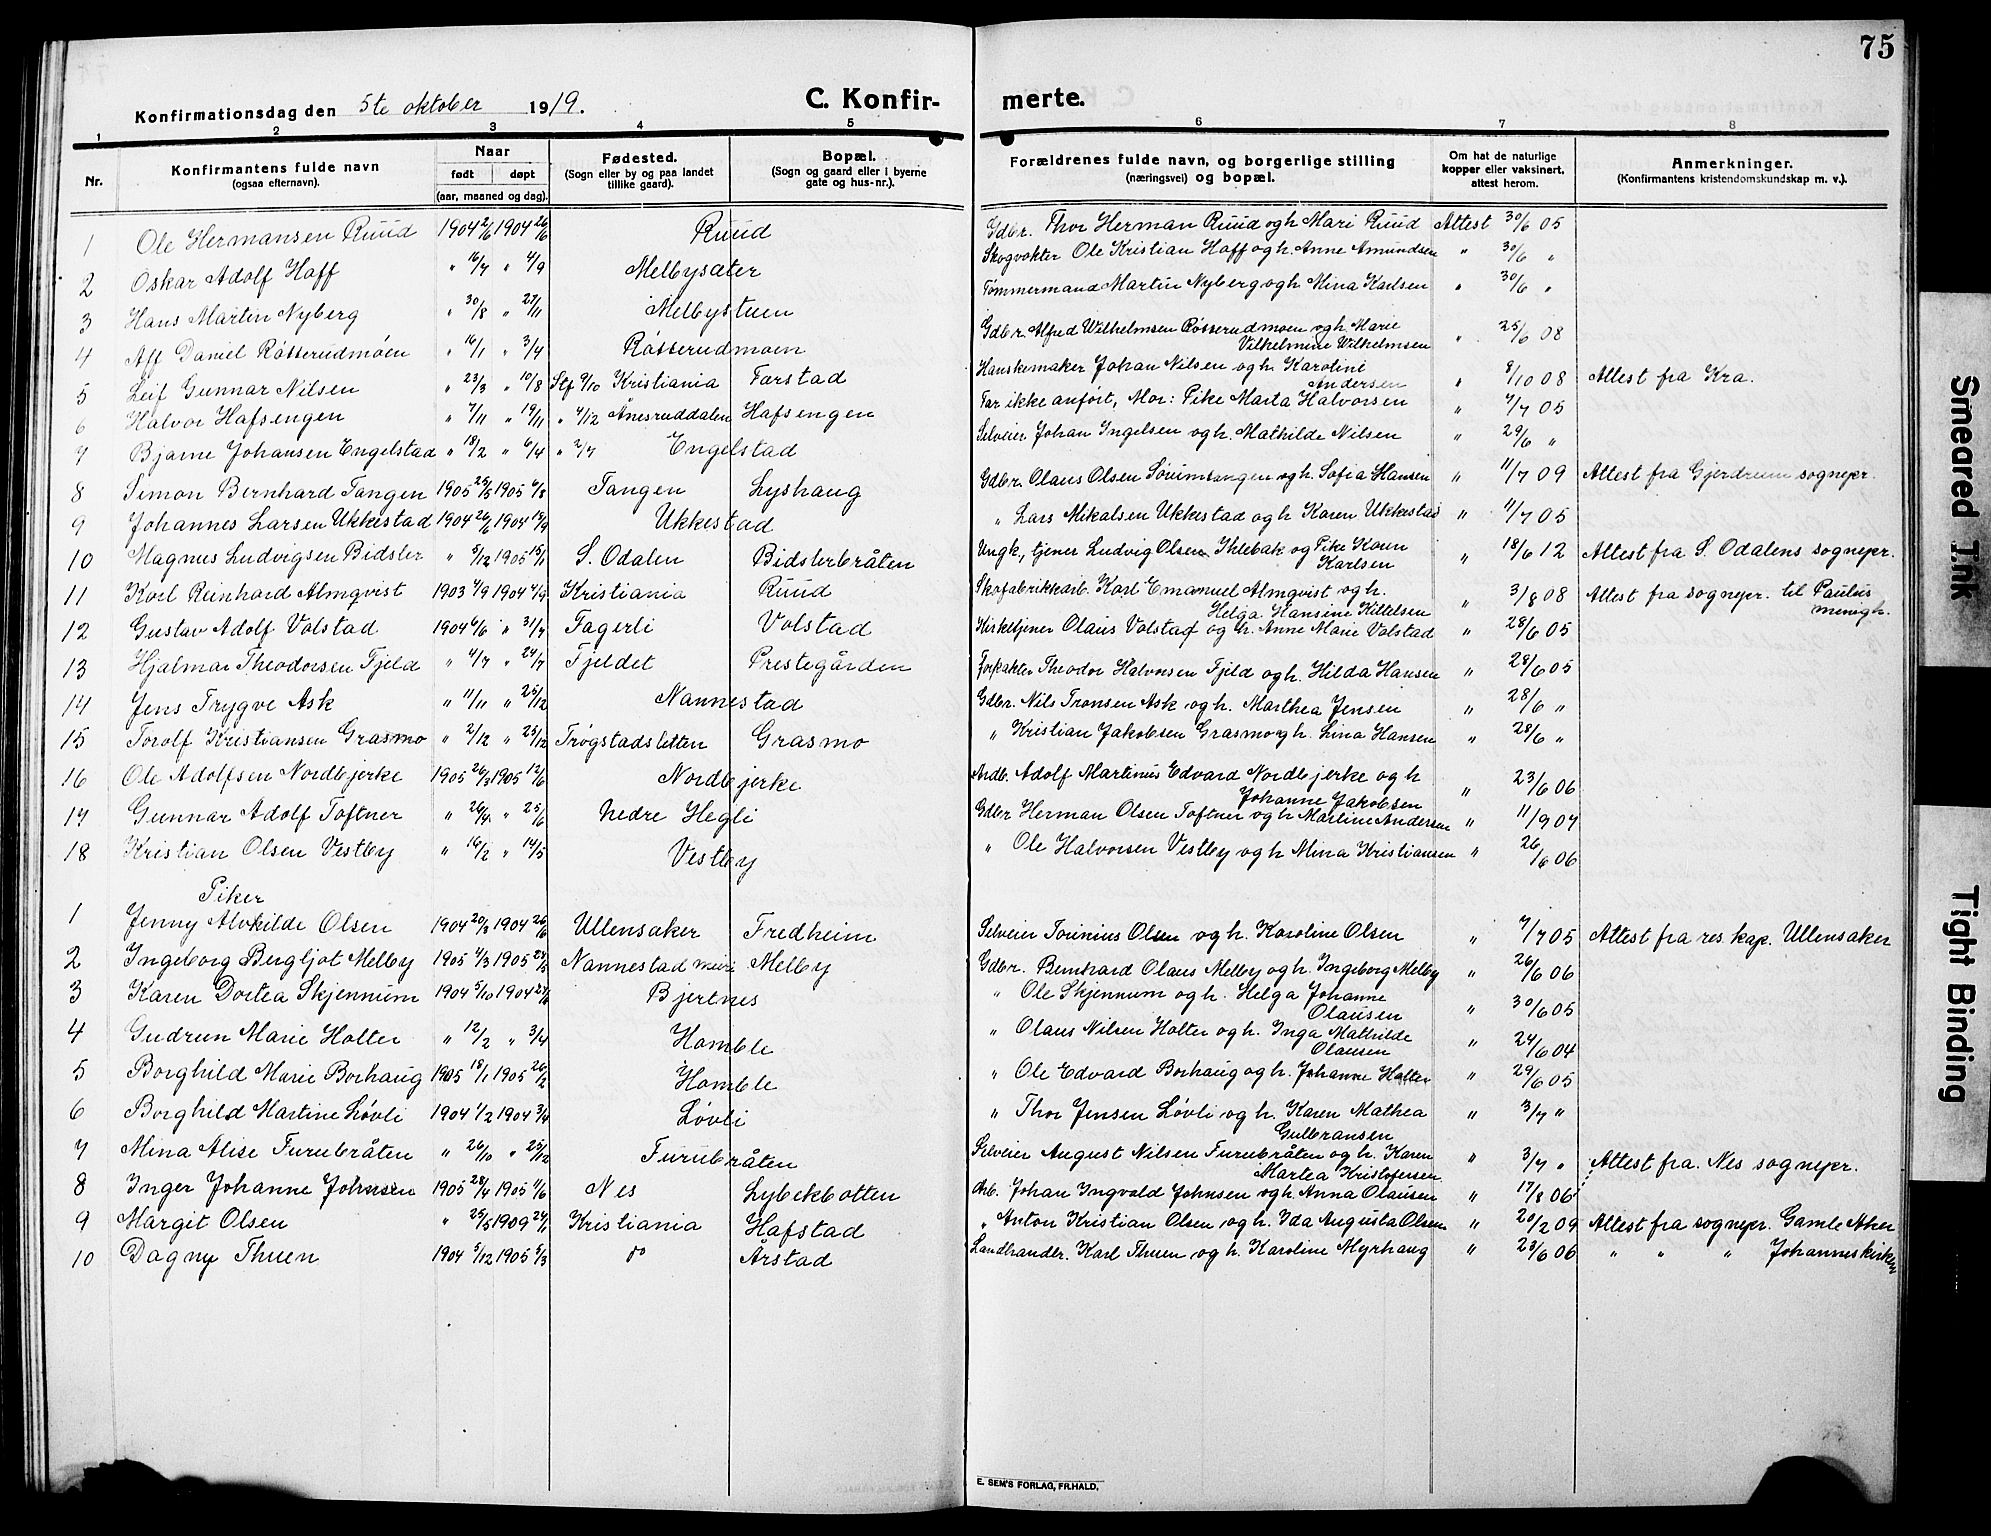 75
Konfirmationsdag den 5te oktober 1919.
C. Konfir-
merte.
1 2 3 4 5 6 7 8
Nr.
Konfirmantens fulde navn
(ogsaa efternavn).
Naar
født døpt
(aar, maaned og dag).
Fødested.
(Sogn eller by og paa landet
tillike gaard).
Bopæl.
(Sogn og gaard eller i byerne
gate og hus-nr.).
Forældrenes fulde navn, og borgerlige stilling
(næringsvei) og bopæl.
Om hat de naturlige
kopper eller vaksinert,
attest herom.
Anmerkninger.
(Konfirmantens kristendomskundskap m. v.).
1 Ole Hermansen Ruud 1904 2/6 1904 26/6 Ruud Gdbr. Thor Herman Ruud og h Mari Ruud Attest 30/6 05
2 Oskar Adolf Hoff " 16/7 " 4/9 Melbysæter Skogvokter Ole Kristian Hoff og h. Anne Amundsen " 30/6 "
3 Hans Martin Nyberg " 30/8 " 27/11 Melbystuen Tømmermand Martin Nyberg og h Mina Karlsen " 30/6 "
4 Alf Daniel Røsserudmoen " 16/1 " 3/4 Røsserudmoen Gdbr. Alfred Wilhelmsen Røsserudmoen og h. Marie
Vilhelmine Wilhelmsen " 25/6 08
5 Leif Gunnar Nilsen " 23/3 " 10/8 Stf 9/10 Kristiania Farstad Hanskemaker Johan Nilsen og h. Karoline
Andersen " 8/10 08 Attest fra Kra.
6 Halvor Hafsengen " 7/11 " 19/11 " 4/12 Ånesruddalen Hafsengen Far ikke anført, Mor: Pike Marta Halvorsen " 7/7 05
7 Bjarne Johansen Engelstad " 18/2 " 6/4 " 2/7 Engelstad Selveier Johan Ingelsen og h. Mathilde Nilsen " 29/6 "
8 Simon Bernhard Tangen 1905 25/5 1905 6/8 Tangen Lyshaug Gdbr. Olaus Olsen Sørumtangen og h. Sofia Hansen " 11/7 09 Attest fra Gjerdrum sognepr.
9 Johannes Larsen Ukkestad 1904 26/6 1904 18/9 Ukkestad " Lars Mikalsen Ukkestad og h. Karen Ukkestad " 11/7 05
10 Magnus Ludvigsen Bidsler " 5/12 1905 15/1 S. Odalen Bidslerbråten Ungk., tjener Ludvig Olsen Ihlebak og Pike Karen
Karlsen " 18/6 12 Attest fra S. Odalens sognepr.
11 Karl Reinhard Almqvist 1903 4/9 1904 4/9 Kristiania Ruud Skofabrikkarb. Karl Emanuel Almqvist og h.
Helga Hansine Kittelsen " 3/8 08 Attest fra sognepr. til Paulus
menigh.
12 Gustav Adolf Volstad 1904 6/6 " 31/7 Fagerli Volstad Kirketjener Olaus Volstad og h. Anne Marie Volstad " 28/6 05
13 Hjalmar Theodorsen Fjeld " 4/7 " 24/7 Fjeldet Prestegården Forpakter Theodor Halvorsen Fjeld og h. Hilda Hansen " 28/6 05
14 Jens Trygve Ask " 11/11 " 25/12 Nannestad Gdbr. Nils Tronsen Ask og h. Marthea Jensen " 28/6 "
15 Torolf Kristiansen Grasmo " 2/12 " 25/12 Trøgstadsletten Grasmo " Kristian Jakobsen Grasmo og h. Lina Hansen " 28/6 "
16 Ole Adolfsen Nordbjerke 1905 26/3 1905 12/6 Nordbjerke Ardb. Adolf Martinus Edvard Nordbjerke og h
Johanne Jakobsen " 23/6 06
17 Gunnar Adolf Toftner " 26/4 " 25/6 Nedre Hegli Gdbr Herman Olsen Toftner og h Martine Andersen " 11/9 07
18 Kristian Olsen Vestby " 16/2 " 14/5 Vestby " Ole Halvorsen Vestby og h Mina Kristiansen " 26/6 06
Piker
1 Jenny Alvhilde Olsen 1904 20/3 1904 26/6 Ullensaker Fredheim Selveier Torinius Olsen og h. Karoline Olsen " 7/7 05 Attest fra res. kap. Ullensaker
2 Ingeborg Bergljot Melby 1905 11/3 1905 28/5 Nannestad Melby Gdbr. Bernhard Olaus Melby og h. Ingeborg Melby " 26/6 06
3 Karen Dortea Skjennum 1904 5/10 1904 27/11 Bjertnes " Ole Skjennum og h. Helga Johanne
Olausen " 30/6 05
4 Gudrun Marie Holter " 12/2 " 3/4 Homble " Olaus Nilsen Holter og h. Inga Mathilde
Olausen " 24/6 04
5 Borghild Marie Borhaug 1905 18/1 1905 26/2 Homble " Ole Edvard Borhaug og h. Johanne Holter " 29/6 05
6 Borghild Martine Løvli 1904 1/2 1904 3/4 Løvli " Thor Jensen Løvli og h. Karen Mathea
Gulbransen " 3/7 "
7 Mina Alise Furubråten " 26/10 " 25/12 Furubråten Selveier August Nilsen Furubråten og h. Karen
Martea Kristofersen " 3/7 " Attest fra. Nes sognepr.
8 Inger Johanne Johnsen 1905 28/4 1905 11/6 Nes Lybekbotten Arb. Johan Ingvald Johnsen og h. Anna Olausen " 17/8 06
9 Margit Olsen " 25/5 1909 24/1 Kristiania Hafstad " Anton Kristian Olsen og h. Ida Augusta Olsen " 20/2 09 Attest fra sognepr. Gamle Aker
10 Dagny Thuen 1904 5/12 1905 5/3 do Årstad Landhandler. Karl Thuen og h. Karoline Myrhaug " 23/6 06 " " " Johanneskirken
E. SEM'S FORLAG, FR.HALD.
Smeared Ink
Tight Binding